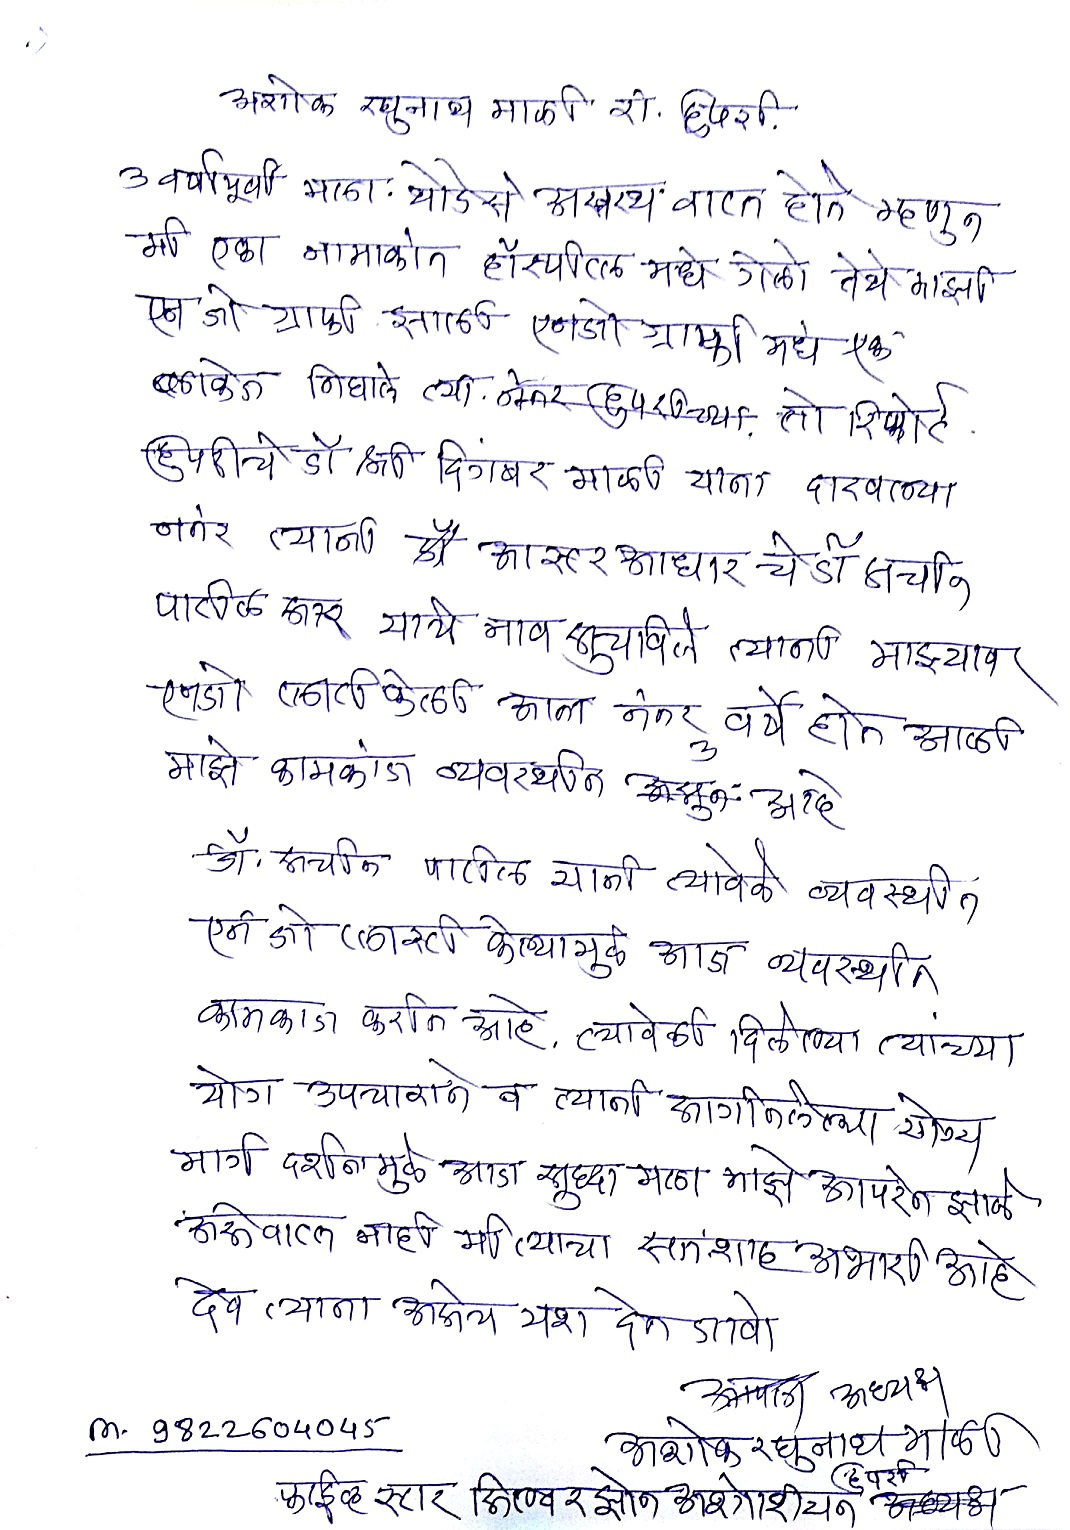 अशोक रघुनाथ माळी रा. हुपरी.
3 वर्षापूर्वी मला थोडेसे अस्वस्थ वाटत होते म्हणुन
मी एका नामाकींत हॉस्पीटल मध्ये गेलो तेथे माझी
एनजो ग्राफी झाली एनजो ग्राफी मध्ये एक
ब्लाकेज निघाले त्या नंतर हुपरीच्या. तो रिपोर्ट
हुपरीचे डॉ श्री दिगंबर माळी याना दाखवल्या
नतंर त्यानी डॉ आस्टर आधार चे डॉ सचीन
पाटील सर याचे नाव सुचविले त्यानी माझ्यावर
एनजो प्लास्टी केली आता नंतर 3 वर्षे होत आली
माझे कामकाज व्यवस्थीत असुन आहे
डॉ. सचीन पाटील यानी त्यावेळे व्यवस्थीत
एनजो प्लास्टी केल्यामुळे आज व्यवस्थीत
कामकाज करीत आहे. त्यावेळी दिलेल्या त्यांच्या
योग उपचाराने व त्यानी सागीतलेल्या योग्य
मार्ग दर्शनामुळे आज सुध्दा मला माझे आपरेन झाले
असे वाटत नाही मी त्याचा सतंशाह अभारी आहे
देव त्याना असेच यश देत जावो
अध्यक्ष
अशोक रघुनाथ माळी
M. 9822604045
हुपरी
फाईव्ह स्टार सिल्वर झोन असोशीयन अध्यक्ष